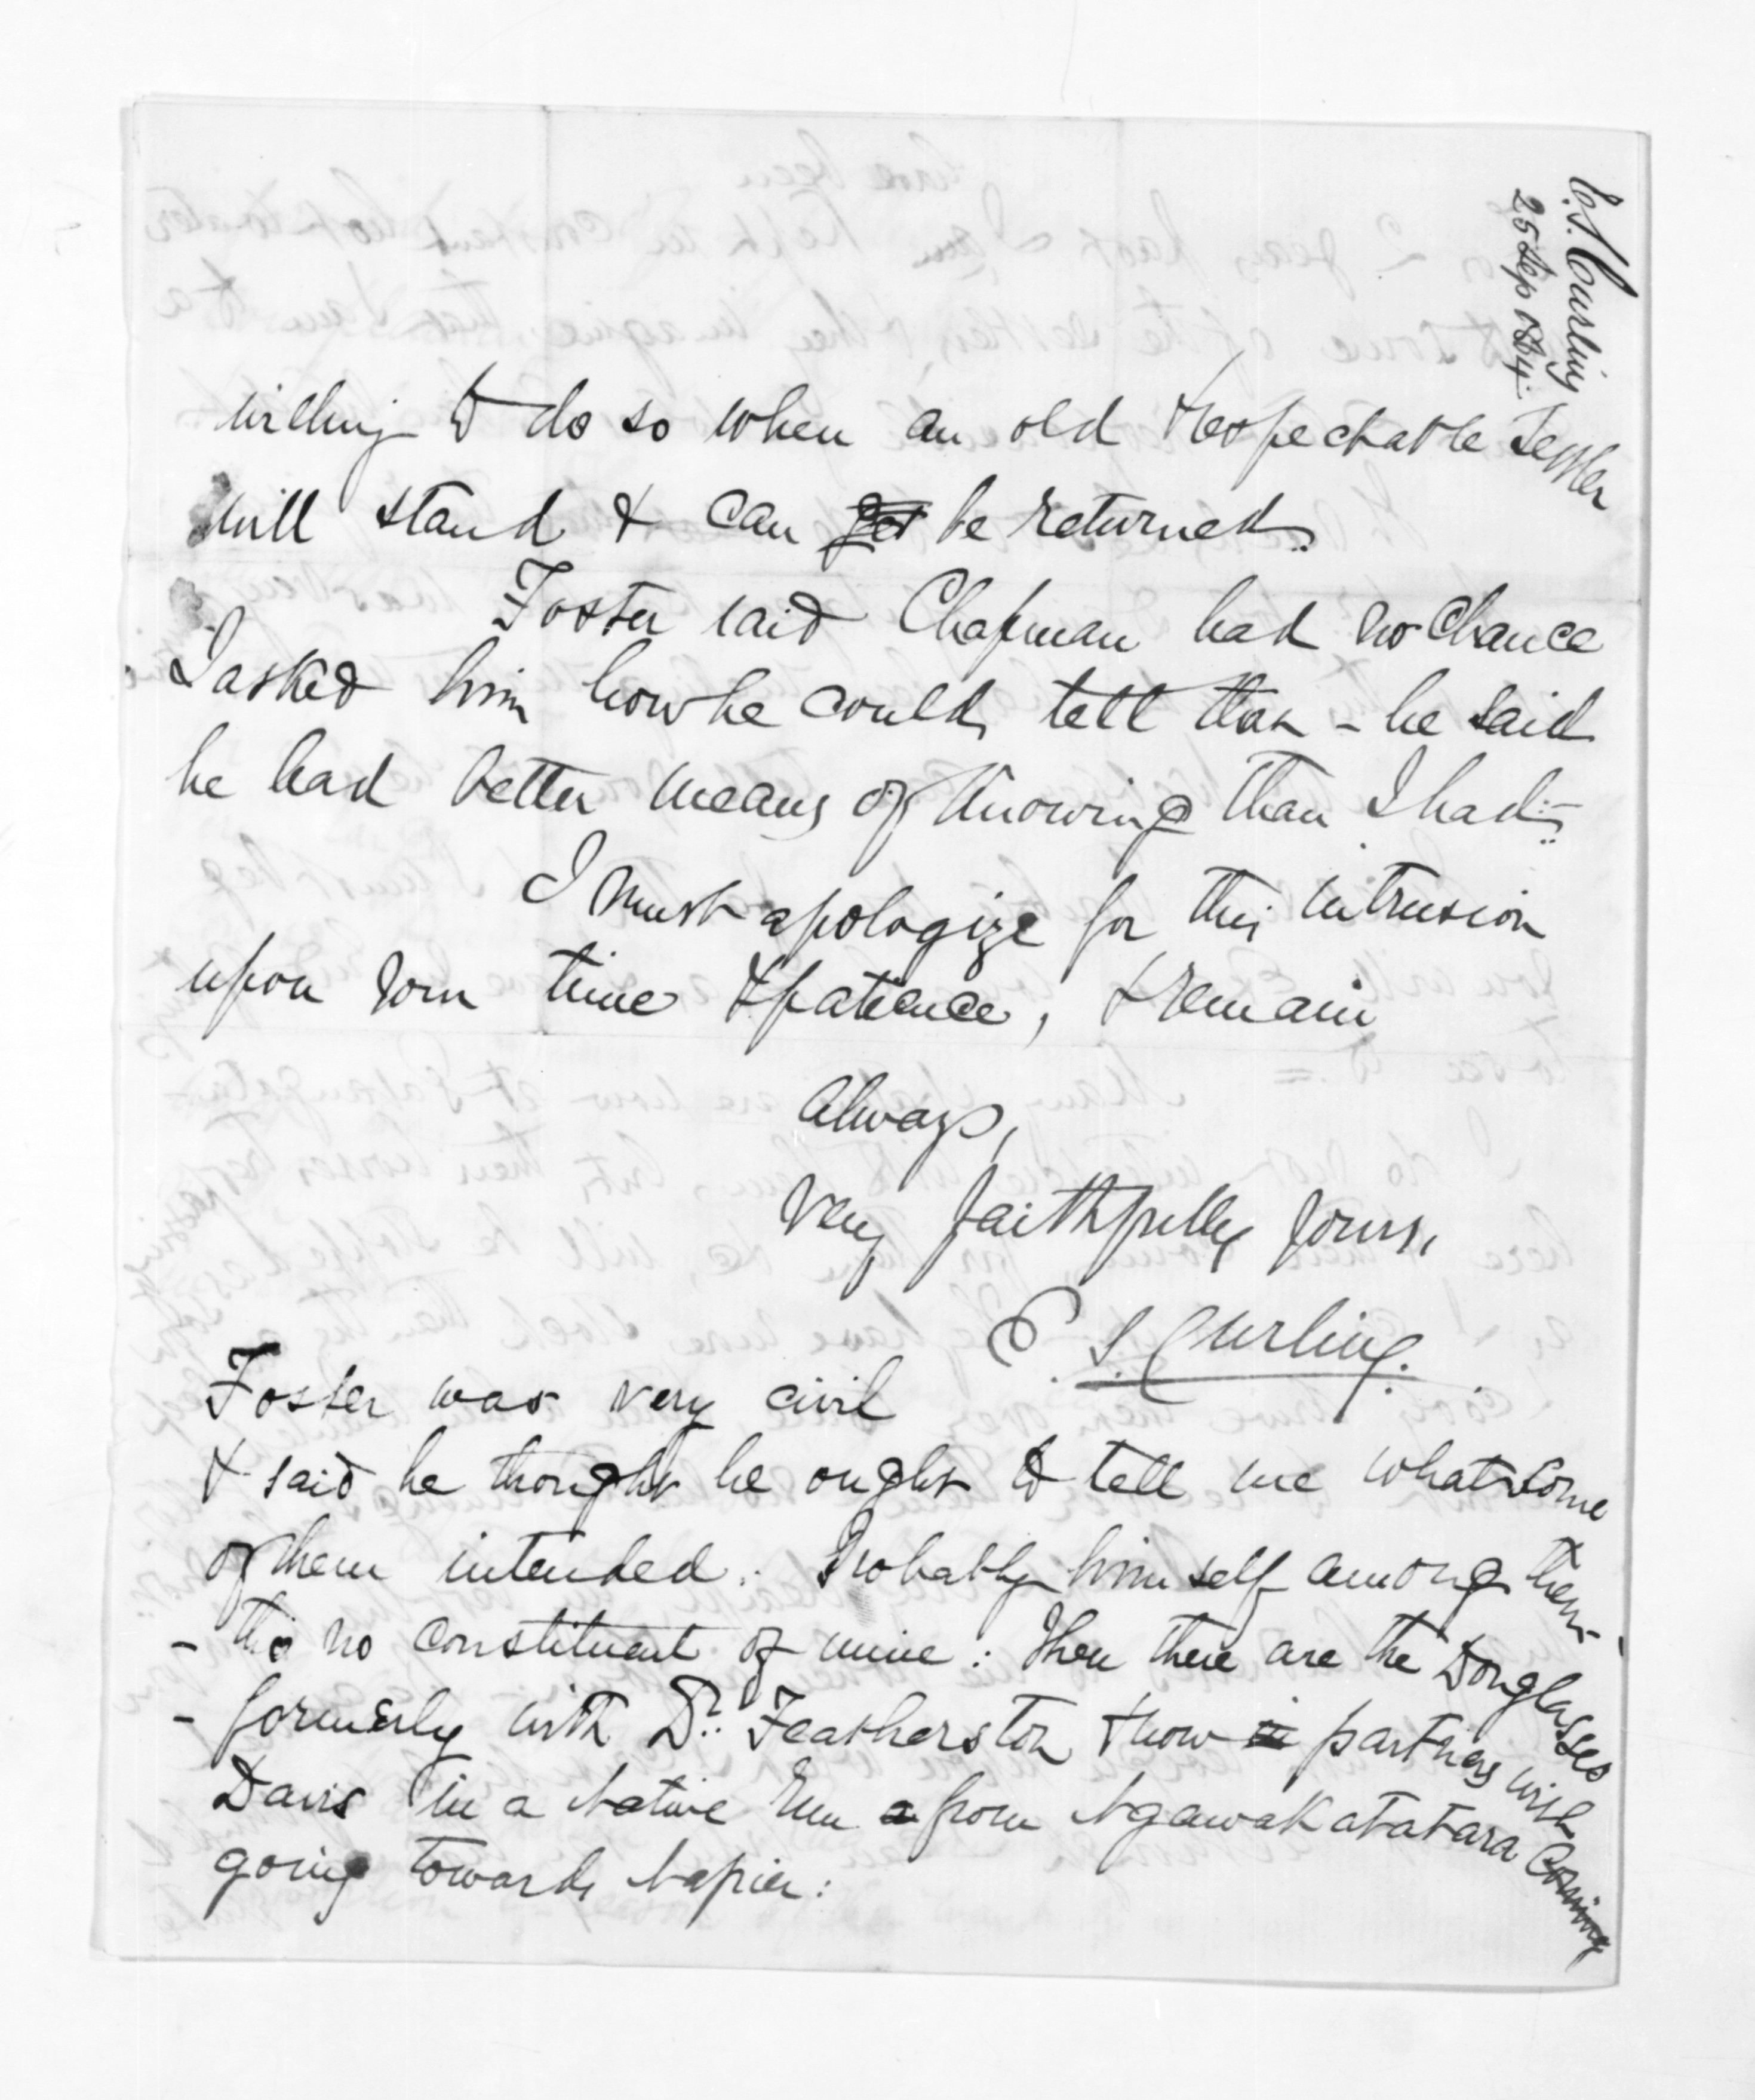 E.S. Curling
25 Sep 1864.
willing to do so when an old & respectable Settler
will stand & can get be returned.
Foster said Chapman had no chance
I asked him how he could tell that - he said
he had better means of knowing than I had:-
I must apologize for this intrusion
upon your time & patience, & remain
Always,
Very faithfully yours,
E. S. Curling.
Foster was very civil
& said he thought he ought to tell me what some
of them intended. Probably himself among them
- tho no constituent of mine: Then there are the Douglasses
- formerly with Dr. Featherston & now in partners with
Davis in a Native Run a from Ngawakatatara coming
going towards Napier: